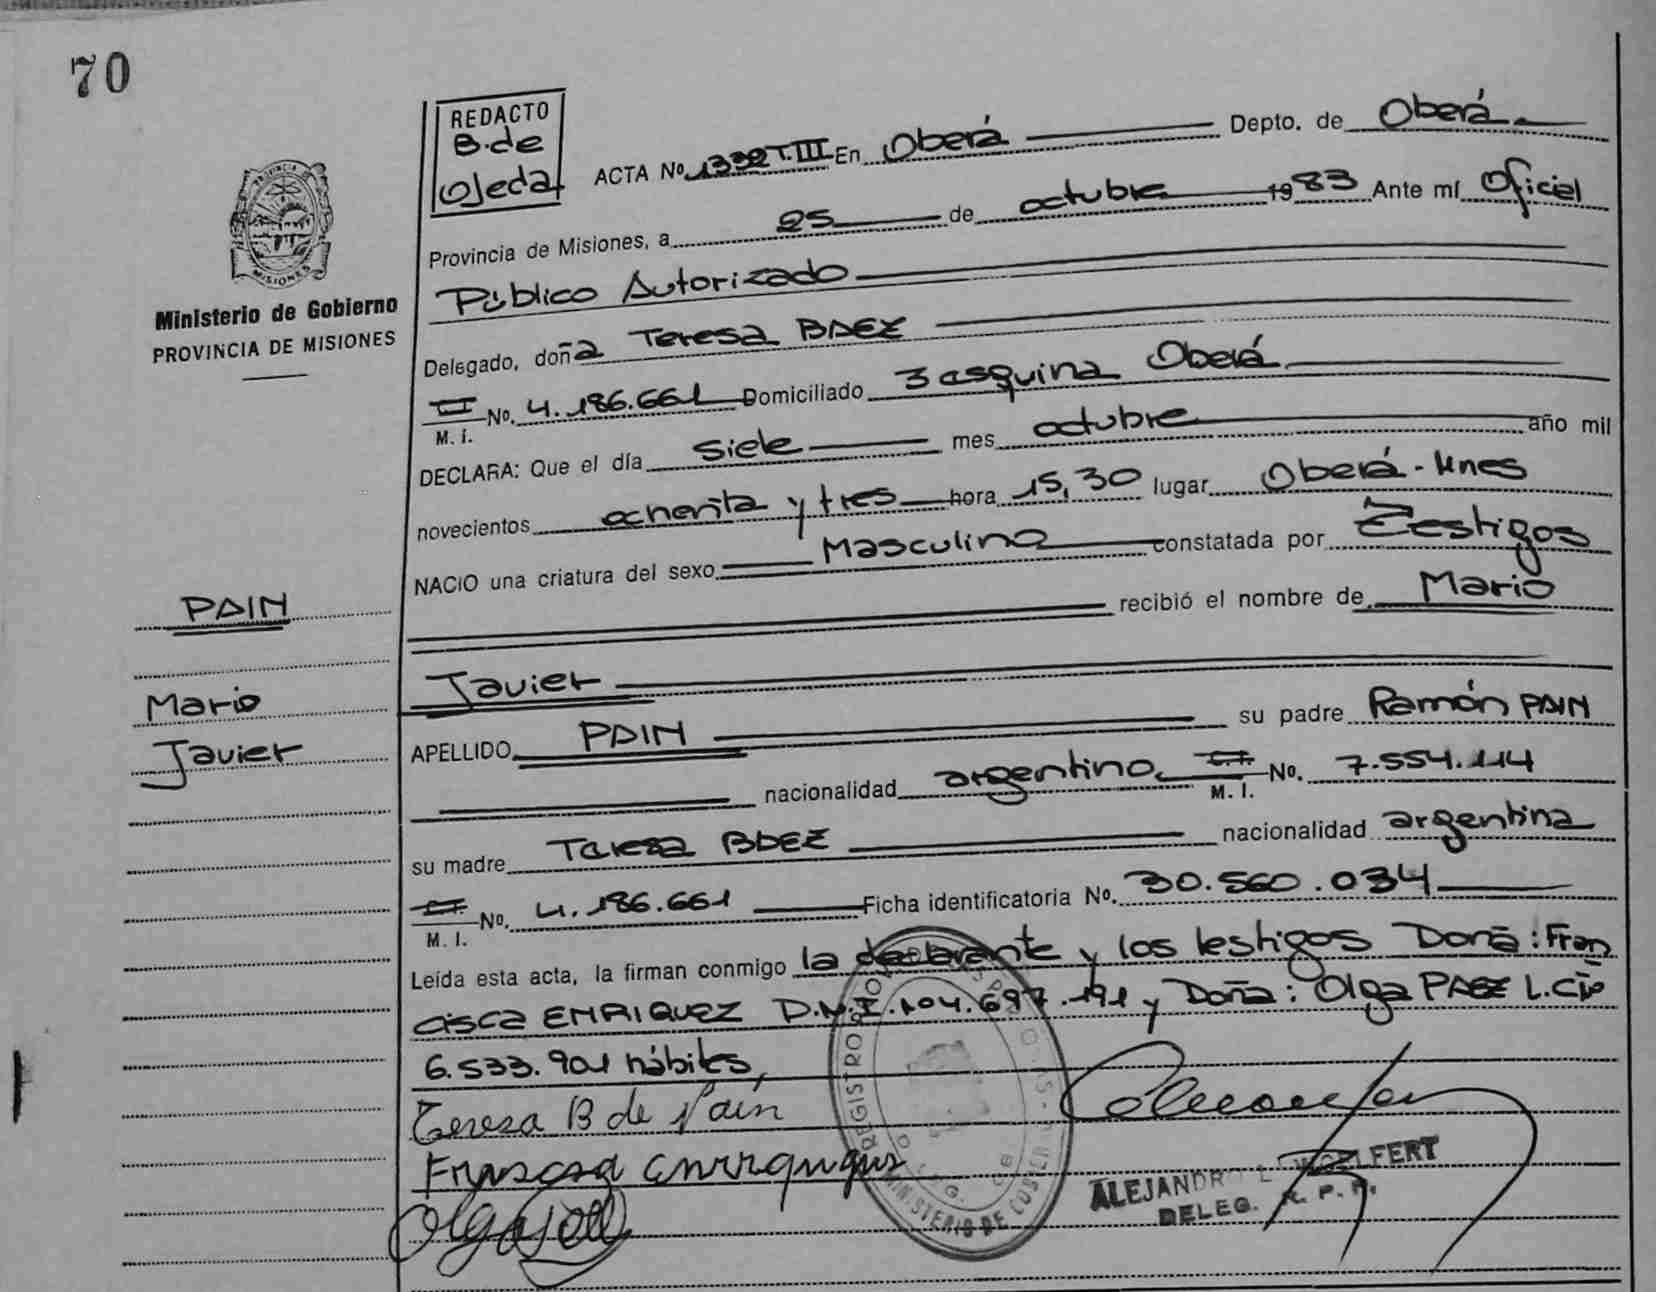 70
REDACTO
B. de
Ojeda
ACTA No. 1332 T. III En Oberá Depto. de Oberá
Provincia de Misiones, a 25 de octubre 1983 Ante mí Oficial
Público Autorizado
Delegado, doña Teresa BAEZ
C.I. No. 4.186.661 Domiciliado 3 esquina Oberá
M. I.
DECLARA: Que el día siete mes octubre año mil
novecientos ochenta y tres hora 15,30 lugar Oberá - Mnes
NACIO una criatura del sexo Masculino constatada por Testigos
recibió el nombre de Mario
Javier
APELLIDO PAIN su padre Ramón PAIN
nacionalidad argentino C.I. No. 7.554.114
M. I.
su madre Teresa BAEZ nacionalidad argentina
C.I. No. 4.186.661 Ficha identificatoria No. 30.560.034
M. I.
Leída esta acta, la firman conmigo la declarante y los testigos Doña: Fran
cisca ENRIQUEZ D.N.I. 104.697.191 y Doña: Olga PAEZ L.C.
6.533.901 hábiles,
Teresa B de Pain
ALEJANDRO
DELEG. R. P. P.
REGISTRO
MINISTERIO DE GOBIERNO
MISIONES
Ministerio de Gobierno
PROVINCIA DE MISIONES
PAIN
Mario
Javier